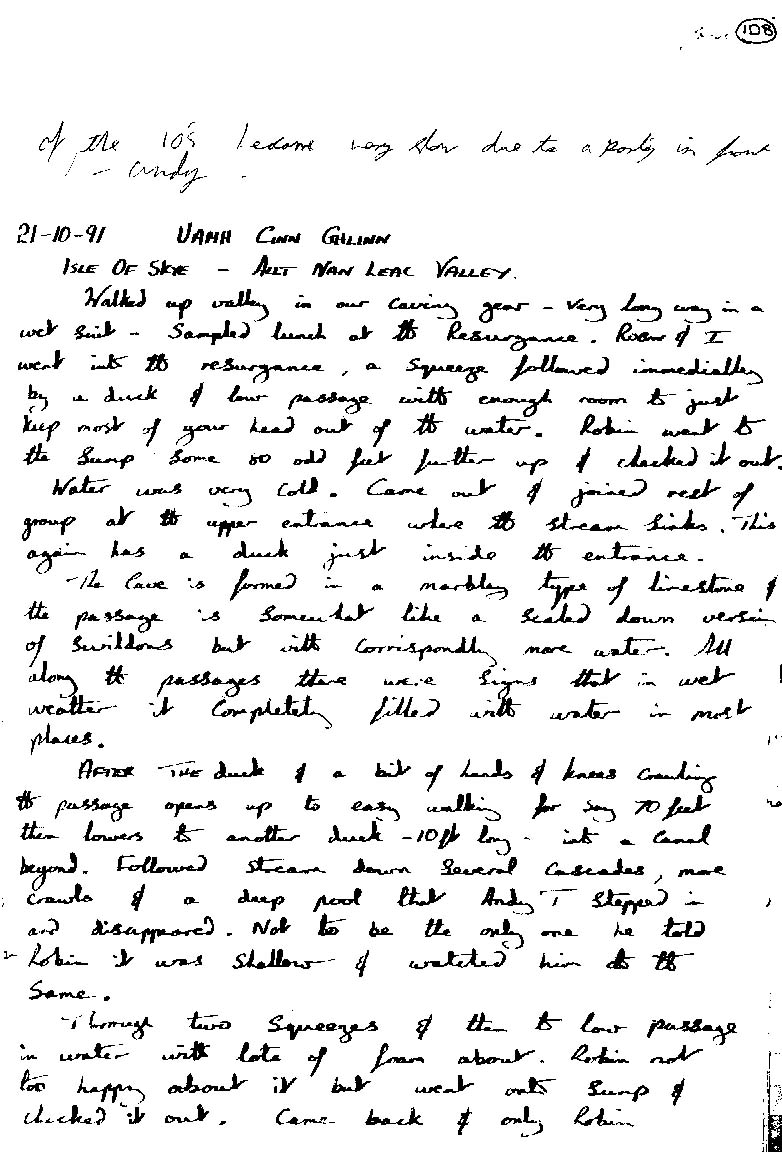 108
of the 10's became very slow due to a party in front
- Andy.
21-10-91 UAMH CINN GHLINN
ISLE OF SKYE - ALLT NAN LEAC VALLEY.
Walked up valley in our caving gear - very long way in a
wet suit - Sampled lunch at the Resurgance. Robin & I
went into the resurgance, a squeeze followed immediatley
by a duck & low passage with enough room to just
keep most of your head out of the water. Robin went to
the Sump some 50 odd feet further up & checked it out.
Water was very cold. Came out & joined rest of
group at the upper entrance where the stream sinks. This
again has a duck just inside the entrance.
The Cave is formed in a marbley type of limestone &
the passage is somewhat like a scaled down version
of Swildons but with correspondly more water. All
along the passages there were signs that in wet
weather it completely filled with water in most
places.
AFTER THE duck & a bit of hands & knees crawling
the passage opens up to easy walking for say 70 feet
then lowers to another duck - 10ft long - into a canal
beyond. Followed stream down several cascades, more
crawls & a deep pool that Andy T stepped in
and disappeared. Not to be the only one he told
Robin it was shallow & watched him do the
same.
Through two squeezes & then to low passage
in water with lots of foam about. Robin not
too happy about it but went onto sump &
checked it out. Came back & only Robin